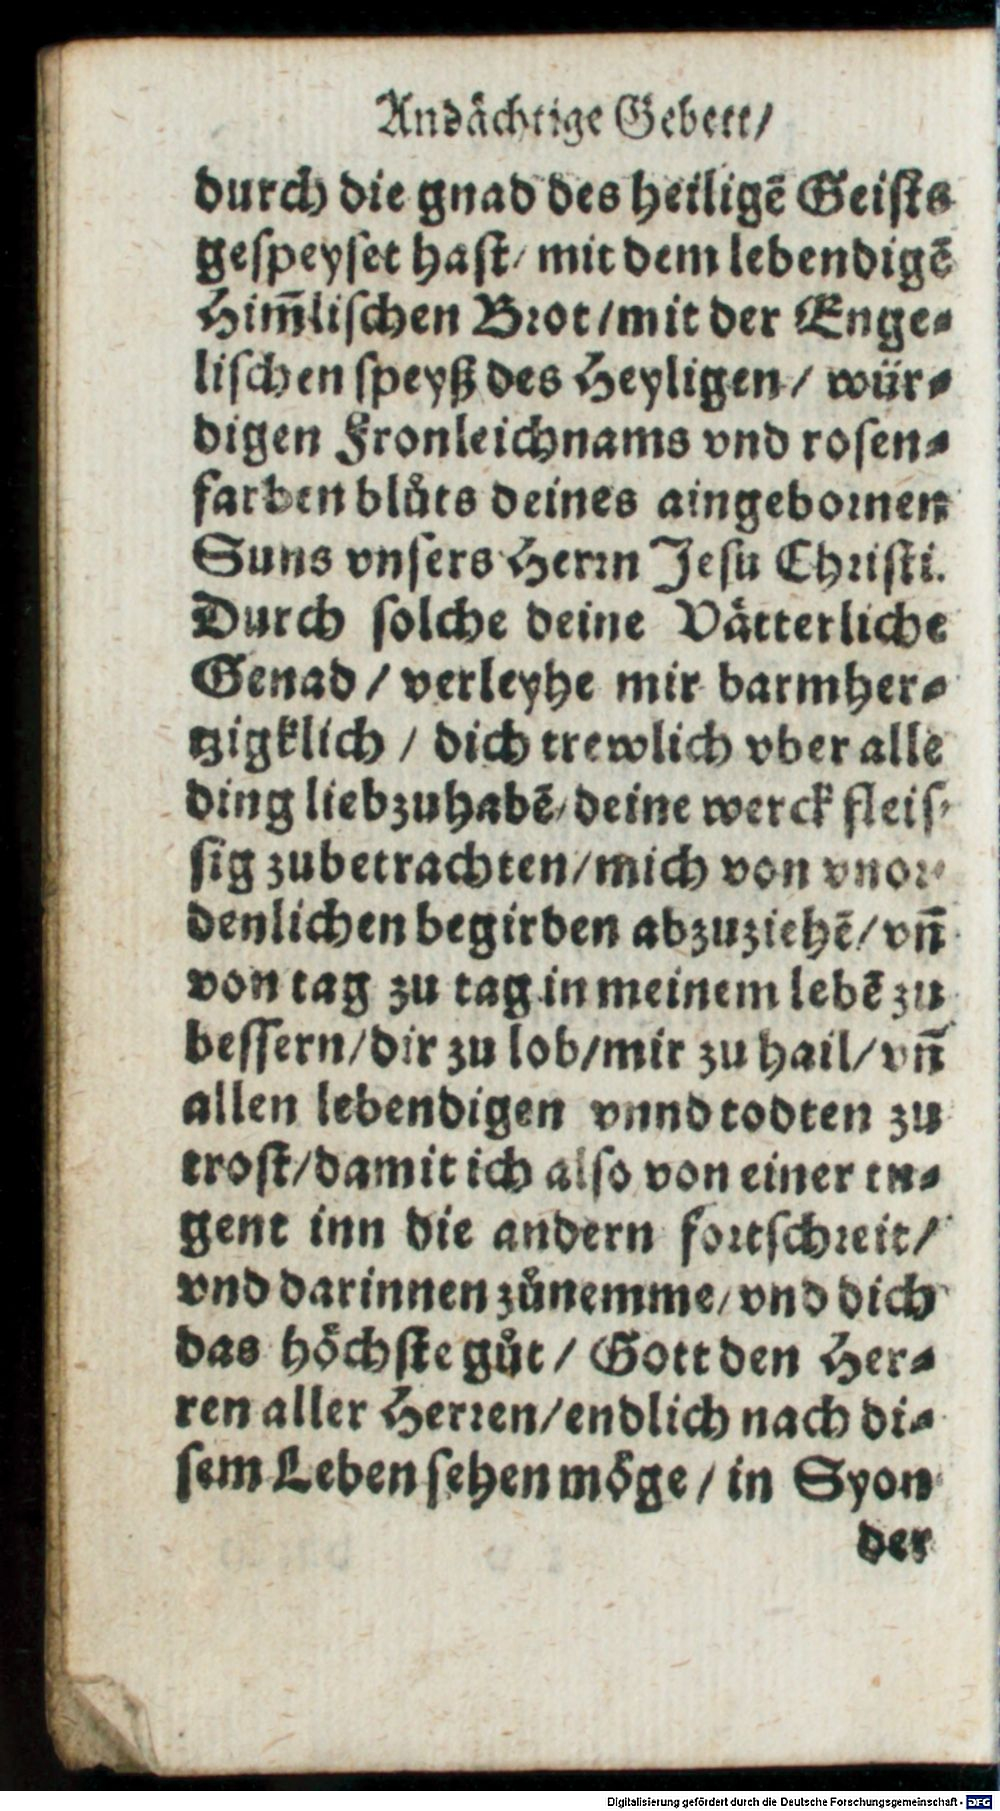 Andaͤchtige Gebett/
durch die gnad des heiligē Geiſts
geſpeyſet haſt/ mit dem lebendigē
Him̄liſchen Brot/mit der Enge⸗
liſchen ſpeyß des Heyligen/ wür⸗
digen Fronleichnams vnd roſen⸗
farben bluͦts deines aingebornen
Suns vnſers Herrn Jeſu Chriſti.
Durch ſolche deine Vaͤtterliche
Genad / verleyhe mir barmher⸗
tzigklich / dich trewlich vber alle
ding liebzuhabē/deine werck fleiſ⸗
ſig zubetrachten/mich von vnor⸗
denlichen begirden abzuziehē/ vn̄
von tag zu tag in meinem lebē zu
beſſern/dir zu lob/mir zu hail/ vn̄
allen lebendigen vnnd todten zu
troſt/damit ich alſo von einer tu⸗
gent inn die andern fortſchreit/
vnd darinnen zuͦnemme/vnd dich
das hoͤchſte guͦt / Gott den Her⸗
ren aller Herren/endlich nach di⸗
ſem Leben ſehen moͤge / in Syon
der
Digitalisierung gefördert durch die Deutsche Forschungsgemeinschaft - DFG